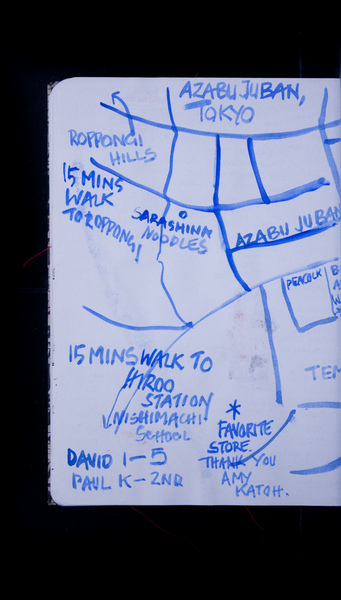 AZABU JUBAN,
TOKYO
ROPPONGI
HILLS
15 MINS
WALK
TO ROPPONGI
SARASHINA
NOODLES
AZABU JUBAN
PEACOCK
15 MINS WALK TO
HIROO
STATION
NISHIMACHI
SCHOOL
TEM
* FAVORITE
STORE.
THANK YOU
AMY
KATOH.
DAVID 1-5
PAUL K-2ND